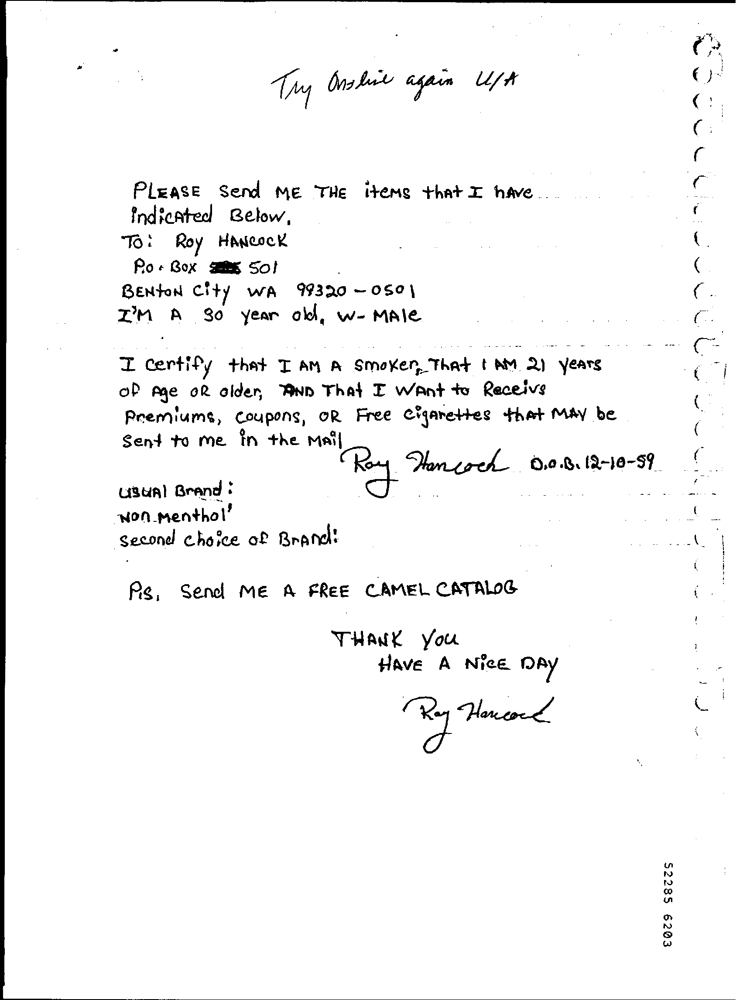 Try Onsline again U/A
PLEASE Send ME THE items that I have
indicated Below.
To: Roy HANCOCK
P.O. Box 501
BENTON City WA 99320-0501
I'M A 30 year old, W-MAle
I certify that I AM A smoker, That I AM 21 years
of Age OR older, AND That I WANt to Receive
Premiums, coupons, OR Free cigarettes that MAY be
Sent to me in the MAil
Roy Hancock D.O.B. 12-10-59
USUAl BrANd:
NON Menthol'
Second choice of BrANd:
P.S. Send ME A FREE CAMEL CATALOG
THANK YOU
HAVE A NiCE DAY
Roy Hancock
52285 6203